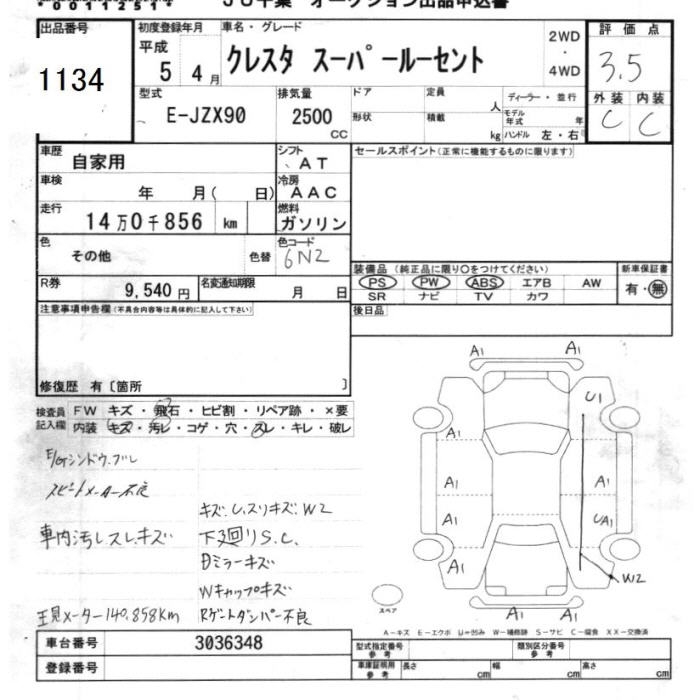 00112514
JU千葉 オークション出品申込書
出品番号
1134
初度登録年月
平成
5 4月
車名・グレード
クレスタ スーパールーセント
2WD
・
4WD
評価点
3.5
外装 内装
C C
型式
E-JZX90
排気量
2500
CC
ドア
形状
定員
人
積載
kg
ディーラー・並行
モデル年式 年
ハンドル 左・右
車歴
自家用
シフト
AT
車検
年 月( 日)
冷房
AAC
走行
14万0千856 km
燃料
ガソリン
色
その他
色替
色コード
6N2
R券
9,540円
名変通知期限
月 日
セールスポイント(正常に機能するものに限ります)
装備品(純正品に限り〇をつけてください)
PS PW ABS エアB AW
SR ナビ TV カワ
新車保証書
有・無
後日品
注意事項申告欄(不具合内容等は具体的に記入して下さい)
修復歴 有〔箇所 〕
検査員記入欄
FW キズ・飛石・ヒビ割・リペア跡・×要
内装 キズ・汚レ・コゲ・穴・スレ・キレ・破レ
E/Gシンドウ.ブレ
スピードメーター不良
車内汚レスレ.キズ
キズ.U.スリキズ.W2
下3回りS.C.
Dミラーキズ
Wキャップキズ
Rゲートダンパー不良
現メーター140.858Km
A1 A1
A1 U1
A1 A1
A1 UA1
A1 W2
A1 A1
スペア
A-キズ E-エクボ U-凹み W-補修跡 S-サビ C-腐食 XX-交換済
車台番号
3036348
登録番号
型式指定番号
参考
類別区分番号
参考
車庫証明用
参考
長さ cm
幅 cm
高さ cm